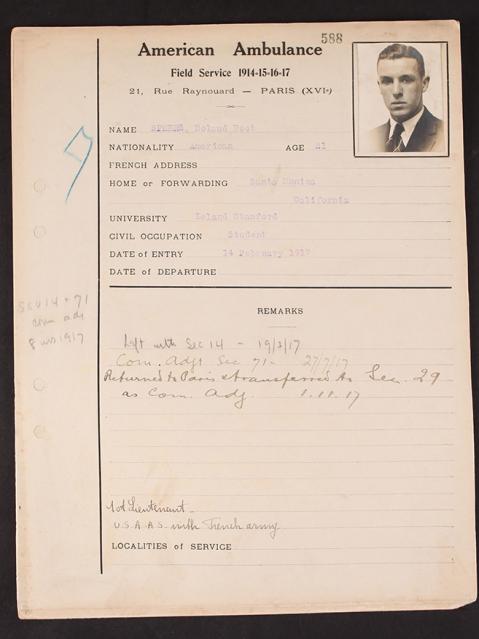 588
American Ambulance
Field Service 1914-15-16-17
21, Rue Raynouard — PARIS (XVIe)
NAME Roland Root
NATIONALITY American AGE 21
FRENCH ADDRESS
HOME or FORWARDING Santa Monica
California
UNIVERSITY Leland Stanford
CIVIL OCCUPATION Student
DATE of ENTRY 14 February 1917
DATE of DEPARTURE
7
REMARKS
Sec 14 + 71
com adj
8 1917
Left with Sec 14 - 19/3/17
Com. Adjt Sec 71 - 27/7/17
Returned to Paris & transferred to Sec. 29
as Com. Adj. 1.11.17
1st Lieutenant
U.S.A.A.S. with French army
LOCALITIES of SERVICE